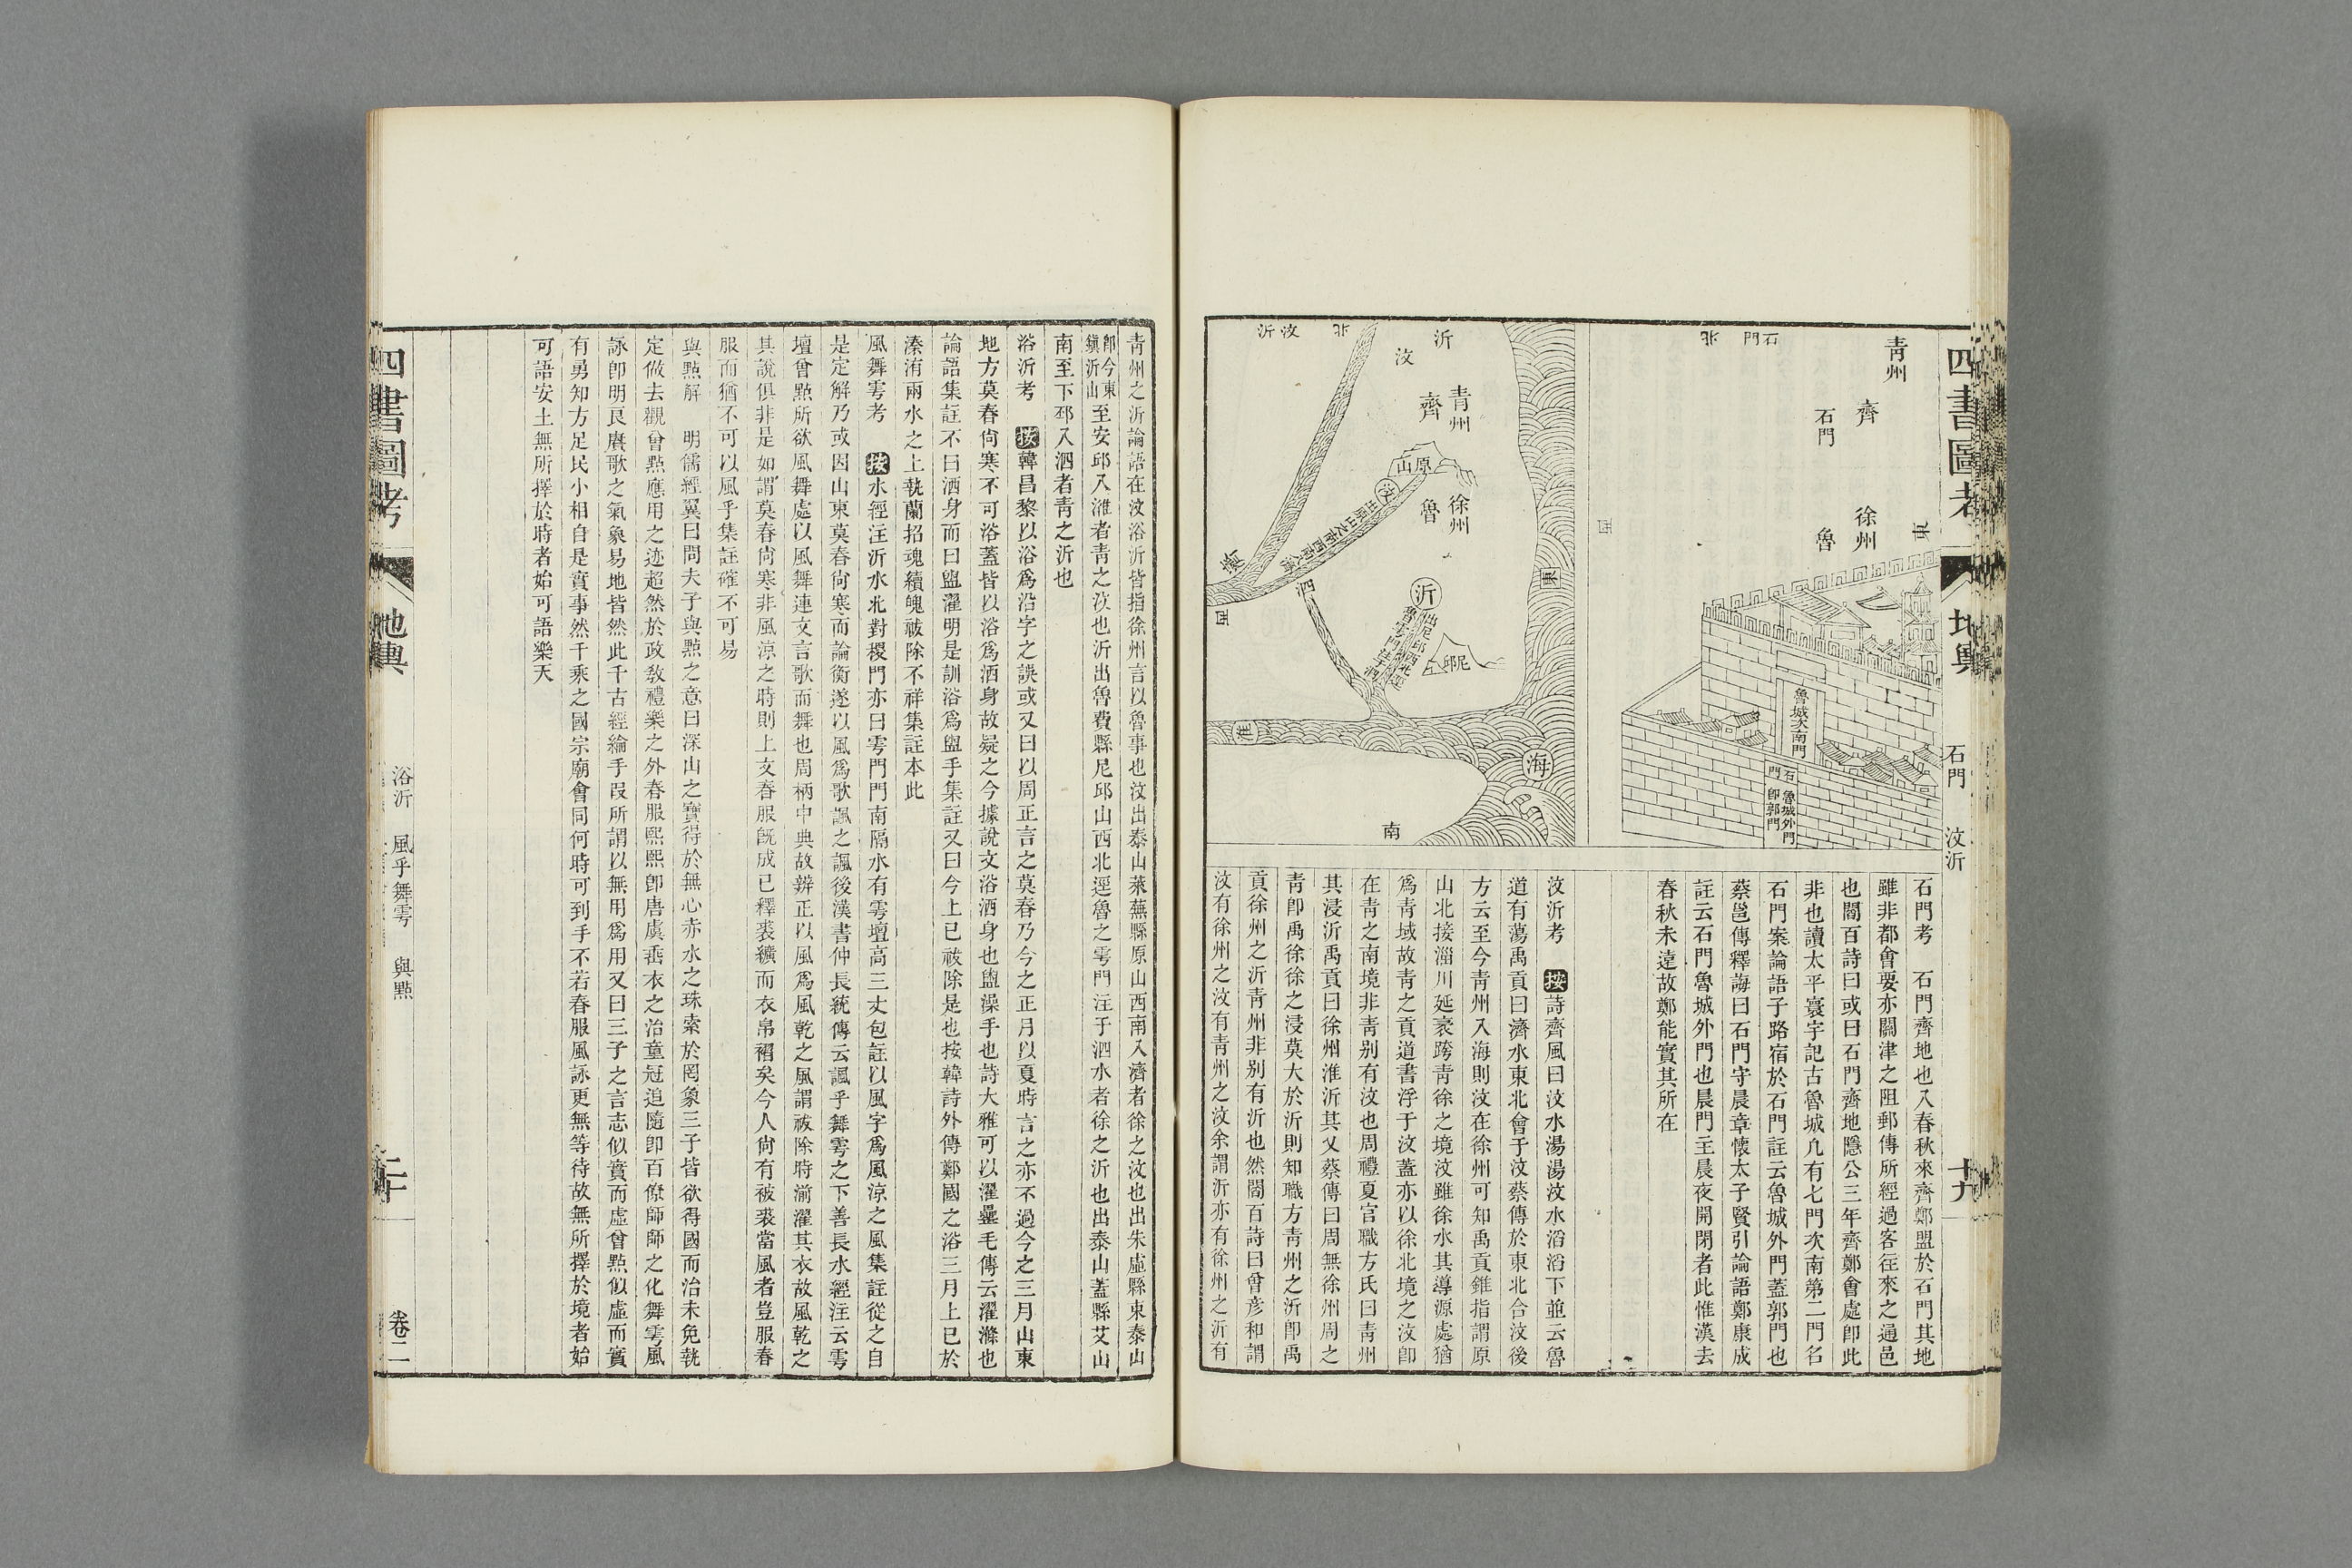 四書圖考
地輿
石門
汶沂
十九
石門
北
青州
齊
石門
徐州
魯
東
西
魯城次南門
石門
魯城外門
卽郭門
汶沂
北
沂
汶
青州
齊
原山
徐州
魯
汶
濟
泗
沂
尼邱
東
西
淮
海
南
石門考　石門齊地也入春秋來齊鄭盟於石門其地
雖非都會要亦關津之阻郵傳所經過客往來之通邑
也閻百詩曰或曰石門齊地隱公三年齊鄭會處卽此
非也讀太平寰宇記古魯城凡有七門次南第二門名
石門案論語子路宿於石門註云魯城外門蓋郭門也
蔡邕傳釋誨曰石門守晨章懷太子賢引論語鄭康成
註云石門魯城外門也晨門主晨夜開閉者此惟漢去
春秋未遠故鄭能實其所在
汶沂考　按詩齊風曰汶水湯湯汶水滔滔下並云魯
道有蕩禹貢曰濟水東北會于汶蔡傳於東北合汶後
方云至今青州入海則汶在徐州可知禹貢錐指謂原
山北接淄川延袤跨青徐之境汶雖徐水其導源處猶
爲青域故青之貢道書浮于汶蓋亦以徐北境之汶卽
在青之南境非青别有汶也周禮夏官職方氏曰青州
其浸沂禹貢曰徐州淮沂其乂蔡傳曰周無徐州周之
青卽禹徐徐之浸莫大於沂則知職方青州之沂卽禹
貢徐州之沂青州非别有沂也然閻百詩曰曾彦和謂
汶有徐州之汶有青州之汶余謂沂亦有徐州之沂有
青州之沂論語在汶浴沂皆指徐州言以魯事也汶出泰山萊蕪縣原山西南入濟者徐之汶也出朱虛縣東泰山
卽今東鎮沂山至安邱入濰者青之汶也沂出魯費縣尼邱山西北逕魯之雩門注于泗水者徐之沂也出泰山蓋縣艾山
南至下邳入泗者青之沂也
浴沂考　按韓昌黎以浴爲沿字之誤或又曰以周正言之莫春乃今之正月以夏時言之亦不過今之三月山東
地方莫春尙寒不可浴蓋皆以浴爲洒身故疑之今據說文浴洒身也盥澡手也詩大雅可以濯罍毛傳云濯滌也
論語集註不曰洒身而曰盥濯明是訓浴爲盥手集註又曰今上巳祓除是也按韓詩外傳鄭國之俗三月上巳於
溱洧兩水之上執蘭招魂續魄祓除不祥集註本此
風舞雩考　按水經注沂水北對稷門亦曰雩門門南隔水有雩壇高三丈包註以風字爲風涼之風集註從之自
是定解乃或因山東莫春尙寒而論衡遂以風爲歌諷之諷後漢書仲長統傳云諷乎舞雩之下善長水經注云雩
壇曾點所欲風舞處以風舞連文言歌而舞也周柄中典故辨正以風爲風乾之風謂祓除時湔濯其衣故風乾之
其說俱非是如謂莫春尙寒非風涼之時則上文春服旣成已釋裘纊而衣帛褶矣今人尙有被裘當風者豈服春
服而猶不可以風乎集註確不可易
與點解　明儒經翼曰問夫子與點之意曰深山之寶得於無心赤水之珠索於罔象三子皆欲得國而治未免執
定做去觀曾點應用之迹超然於政敎禮樂之外春服熙熙卽唐虞垂衣之治童冠追隨卽百僚師師之化舞雩風
詠卽明良賡歌之氣象易地皆然此千古經綸手段所謂以無用爲用又曰三子之言志似實而虛曾點似虛而實
有勇知方足民小相自是實事然千乘之國宗廟會同何時可到手不若春服風詠更無等待故無所擇於境者始
可語安土無所擇於時者始可語樂天
四書圖考
地輿
浴沂
風乎舞雩
與點
二十
卷二